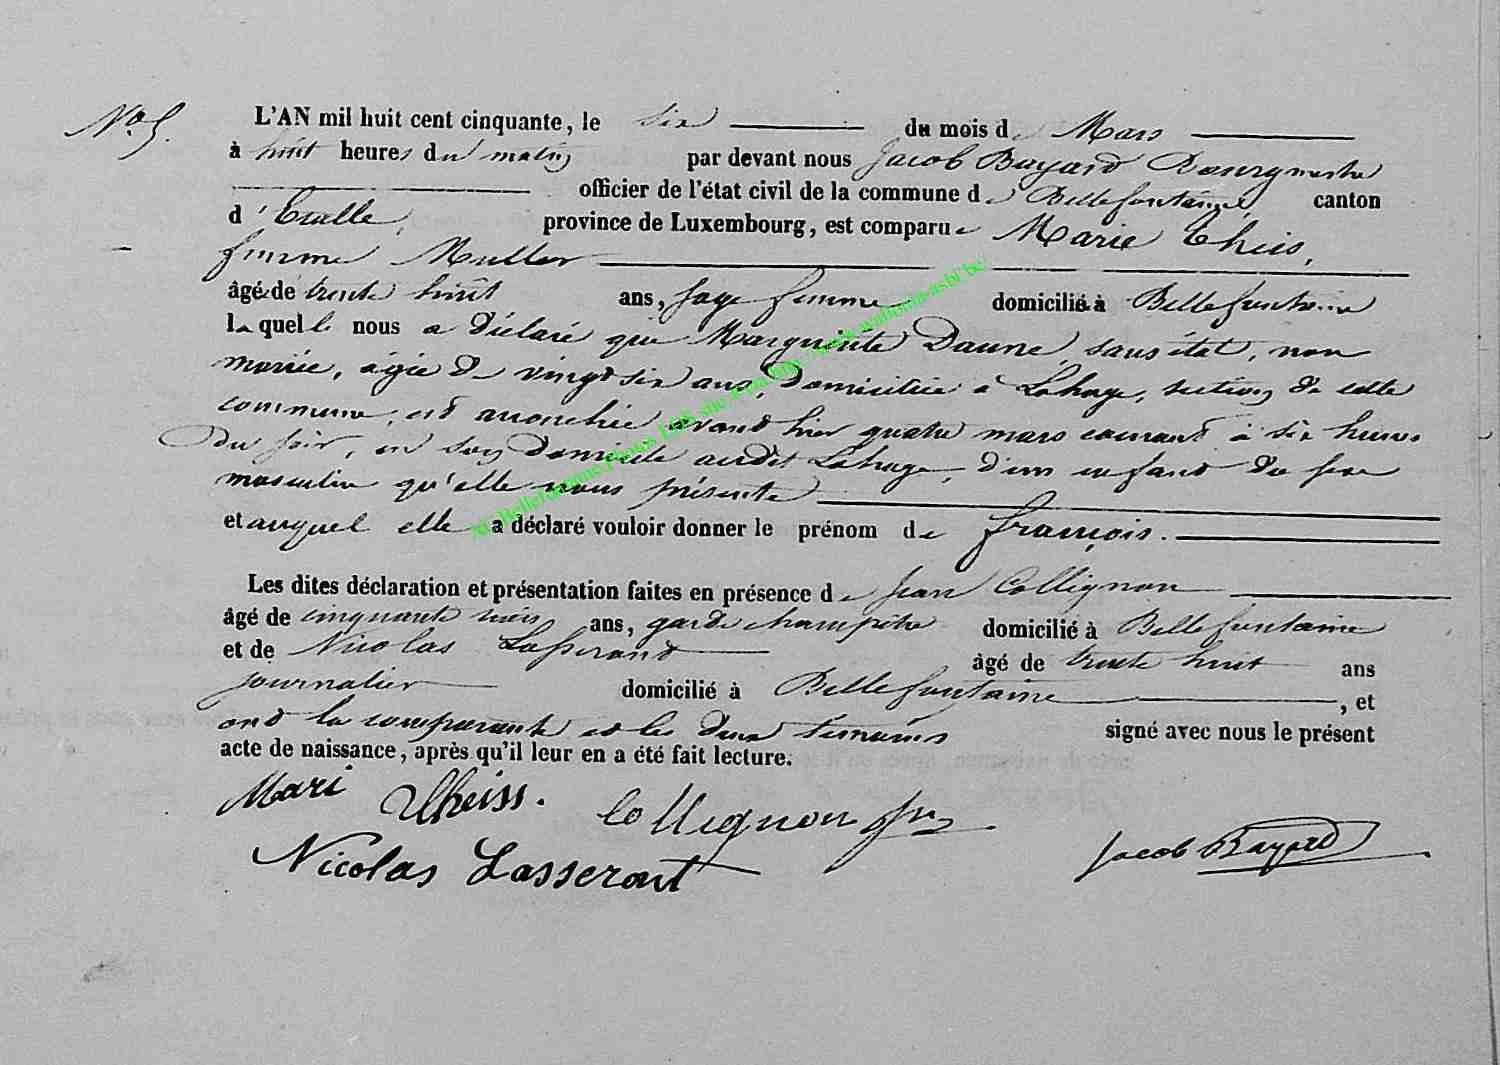 N° 5.
L'AN mil huit cent cinquante, le six du mois de Mars
à huit heures du matin par devant nous Jacob Bayard Bourgmestre
officier de l'état civil de la commune de Bellefontaine, canton
d'Etalle, province de Luxembourg, est comparue Marie Theis,
femme Muller
âgée de trente huit ans, sage femme domiciliée à Bellefontaine
laquelle nous a déclaré que Marguerite Daune, sans état, non
mariée, agée de vingt six ans, domiciliée à Lahage, section de cette
commune, est accouchée avant hier quatre mars courant à six heures
du soir, en son domicile audit Lahage, d'un enfant du sexe
masculin qu'elle nous présente
et auquel elle a déclaré vouloir donner le prénom de François.
Les dites déclaration et présentation faites en présence de Jean Collignon
âgé de cinquante trois ans, garde champêtre domicilié à Bellefontaine
et de Nicolas Lasserond âgé de trente huit ans
journalier domicilié à Bellefontaine, et
ont la comparante et les deux témoins signé avec nous le présent
acte de naissance, après qu'il leur en a été fait lecture.
Mari Theiss. Collignon Jn
Nicolas Lasseront Jacob Bayard